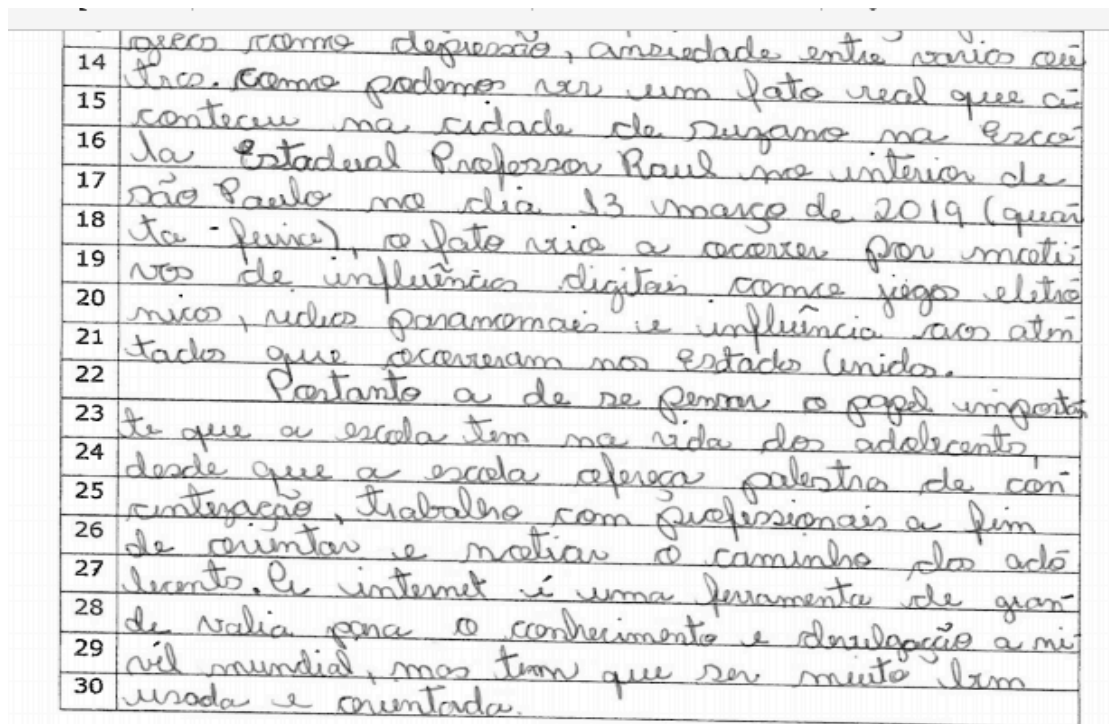 14 greco como depressão, ansiedade entre varios ou
15 tros. Como podemos ver um fato real que a
16 conteceu na cidade de suzano na Esco
17 la Estadual Professor Raul no interior de
18 são Paulo no dia 13 março de 2019 (quar
19 ta-feira), o fato vio a ocorrer por moti
20 vos de influências digitais como jogos eletrô
21 nicos, videos paranomais e influência aos aten
22 tados que ocorreram nos Estados Unidos.
23 Portanto a de se pensar o papel importan
24 te que a escola tem na vida dos adolecents,
25 desde que a escola ofereça palestra de con
26 cintização, trabalho com profissionais a fim
27 de orientar e motiar o caminho dos ado
28 lecents. A internet é uma ferramenta de gran
29 de valia para o conhecimento e devulgação a ni
30 vil mundial, mas tem que ser muito bem
usada e orientada.